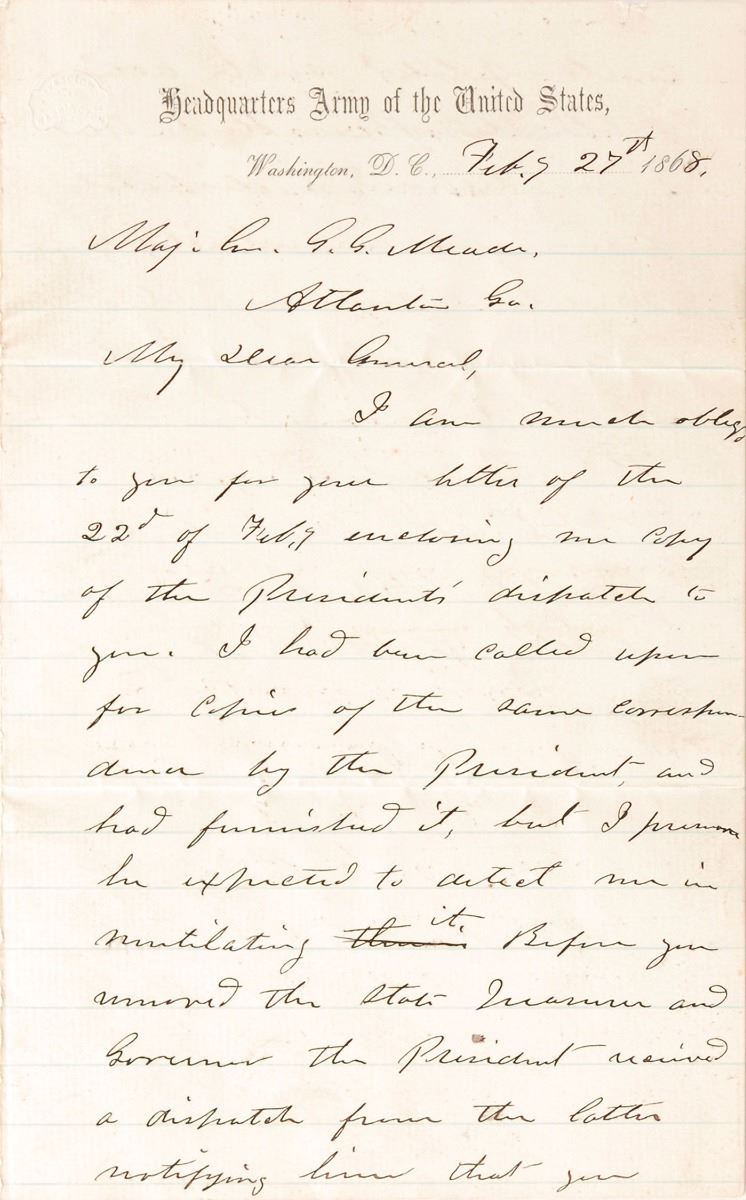 Headquarters Army of the United States,
Washington, D. C., Feb.y 27th 1868.
Maj. Gn. G. G. Meade,
Atlanta Ga.
My Dear General,
I am much oblig'd
to you for your letter of the
22d of Feb.y enclosing me copy
of the President's dispatch to
you. I had been called upon
for copies of the same correspon-
dence by the President, and
had furnished it, but I presume
he expected to detect me in
mutilating them it. Before you
removed the State Treasurer and
Governor the President received
a dispatch from the latter
notifying him that you